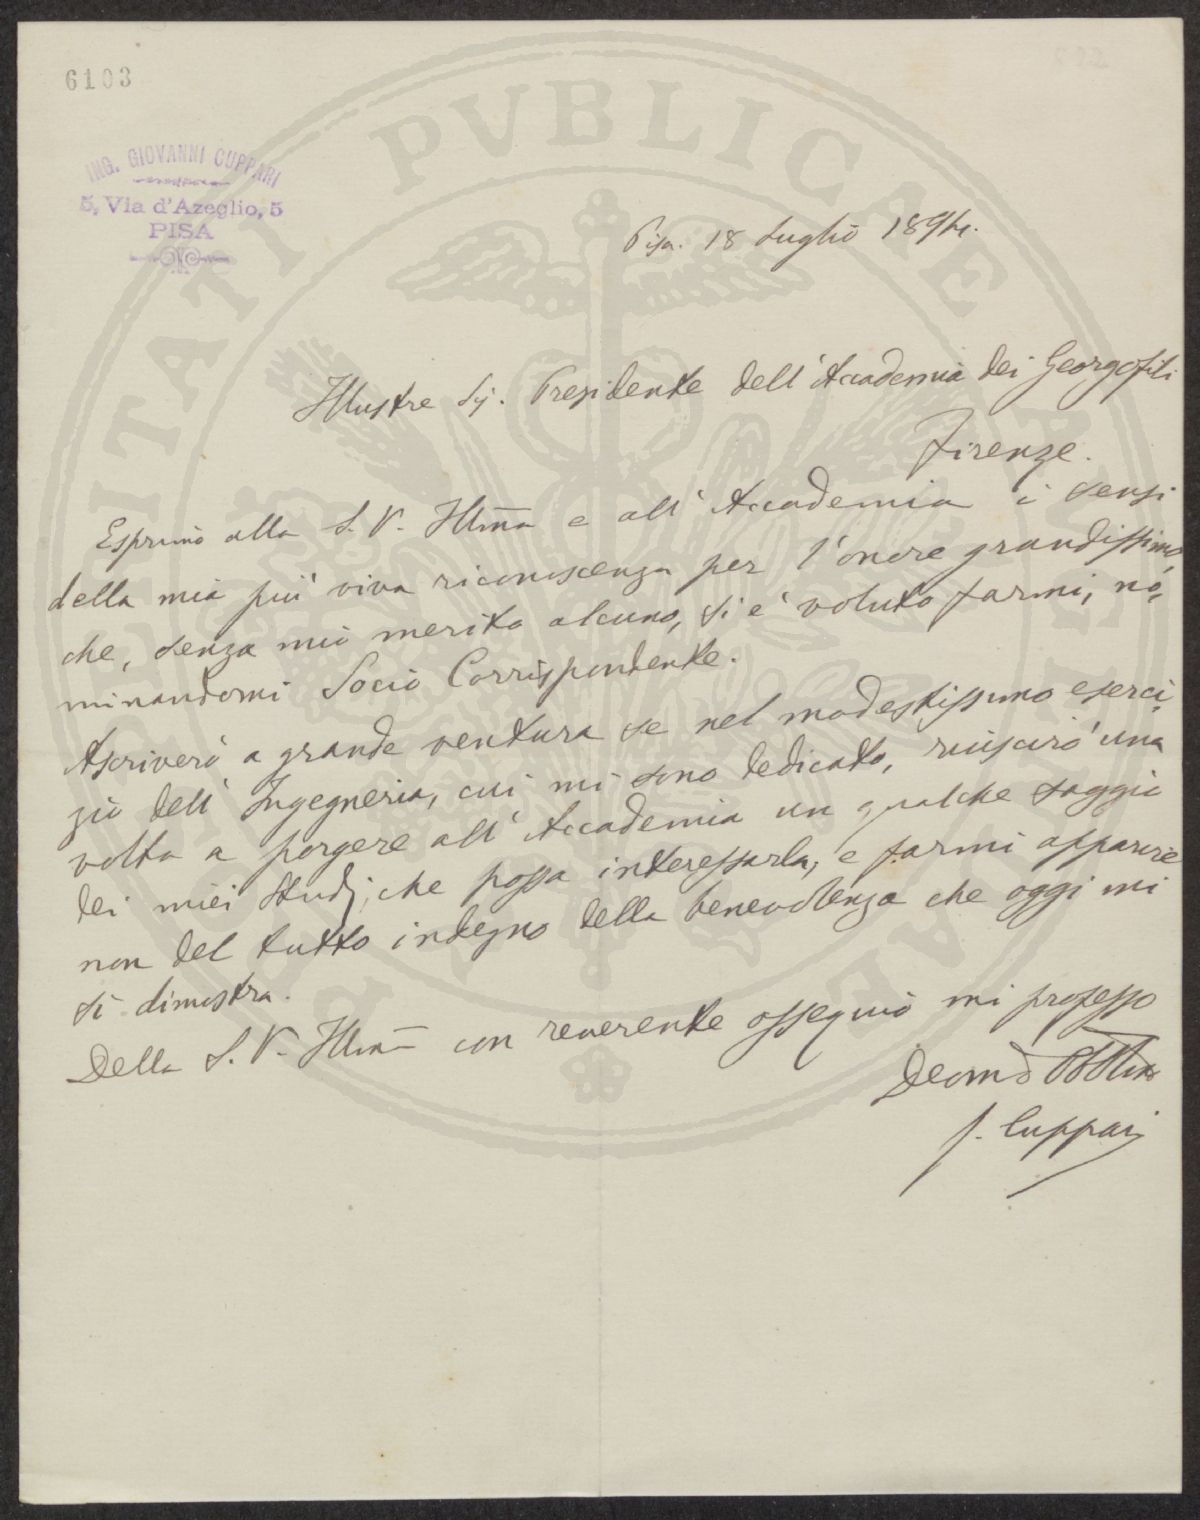 6103
ING. GIOVANNI CUPPARI
5, Via d'Azeglio, 5
PISA
PROSPERITATI PVBLICAE AVGENDAE
Pisa. 18 Luglio 1894.
Illustre Sig. Presidente dell'Accademia dei Georgofili
Firenze.
Esprimo alla S. V. Illma e all'Accademia i sensi
della mia più viva riconoscenza per l'onore grandissimo,
che, senza mio merito alcuno, si è voluto farmi, no-
minandomi Socio Corrispondente.
Ascriverò a grande ventura se nel modestissimo eserci-
zio dell'Ingegneria, cui mi sono dedicato, riuscirò una
volta a porgere all'Accademia un qualche saggio
dei miei studj, che possa interessarla, e farmi apparire
non del tutto indegno della benevolenza che oggi mi
si dimostra.
Della S. V. Illma con reverente ossequio mi professo
Devmo
G. Cuppari